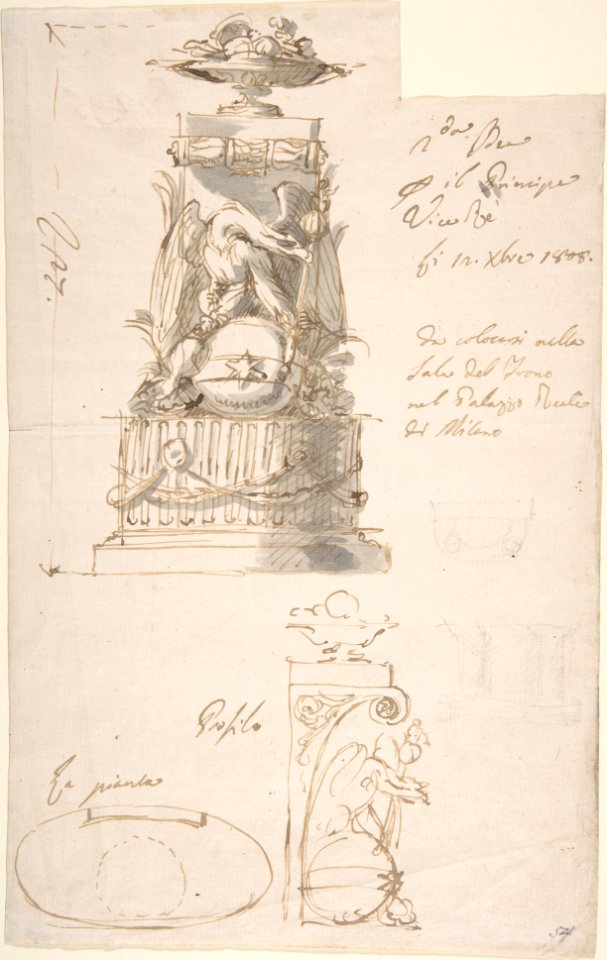 il Principe
Vice Rè
li 12. Xbre 1808.
da colocarsi nella
Sala del Trono
nel Palazzo Reale
di Milano
Profilo
La pianta
54